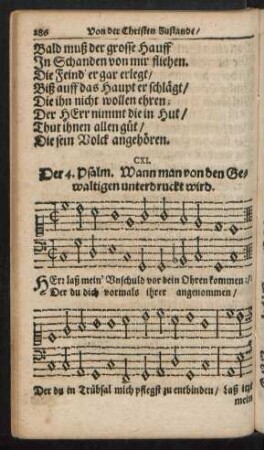 286 Von der Christen Zustande/
Bald muß der grosse Hauff
In Schanden von mir fliehen.
Die Feind' er gar erlegt/
Biß auff das Haupt er schlägt/
Die ihn nicht wollen ehren:
Der HErr nimmt die in Hut/
Thut ihnen allen gut/
Die sein Volck angehören.
CXI.
Der 4. Psalm. Wann man von den Ge-
waltigen unterdruckt wird.
HErr laß mein' Unschuld vor dein Ohren kommen
Der du dich vormals ihrer angenommen/
Der du in Trübsal mich pflegst zu entbinden/ laß itzt
mein